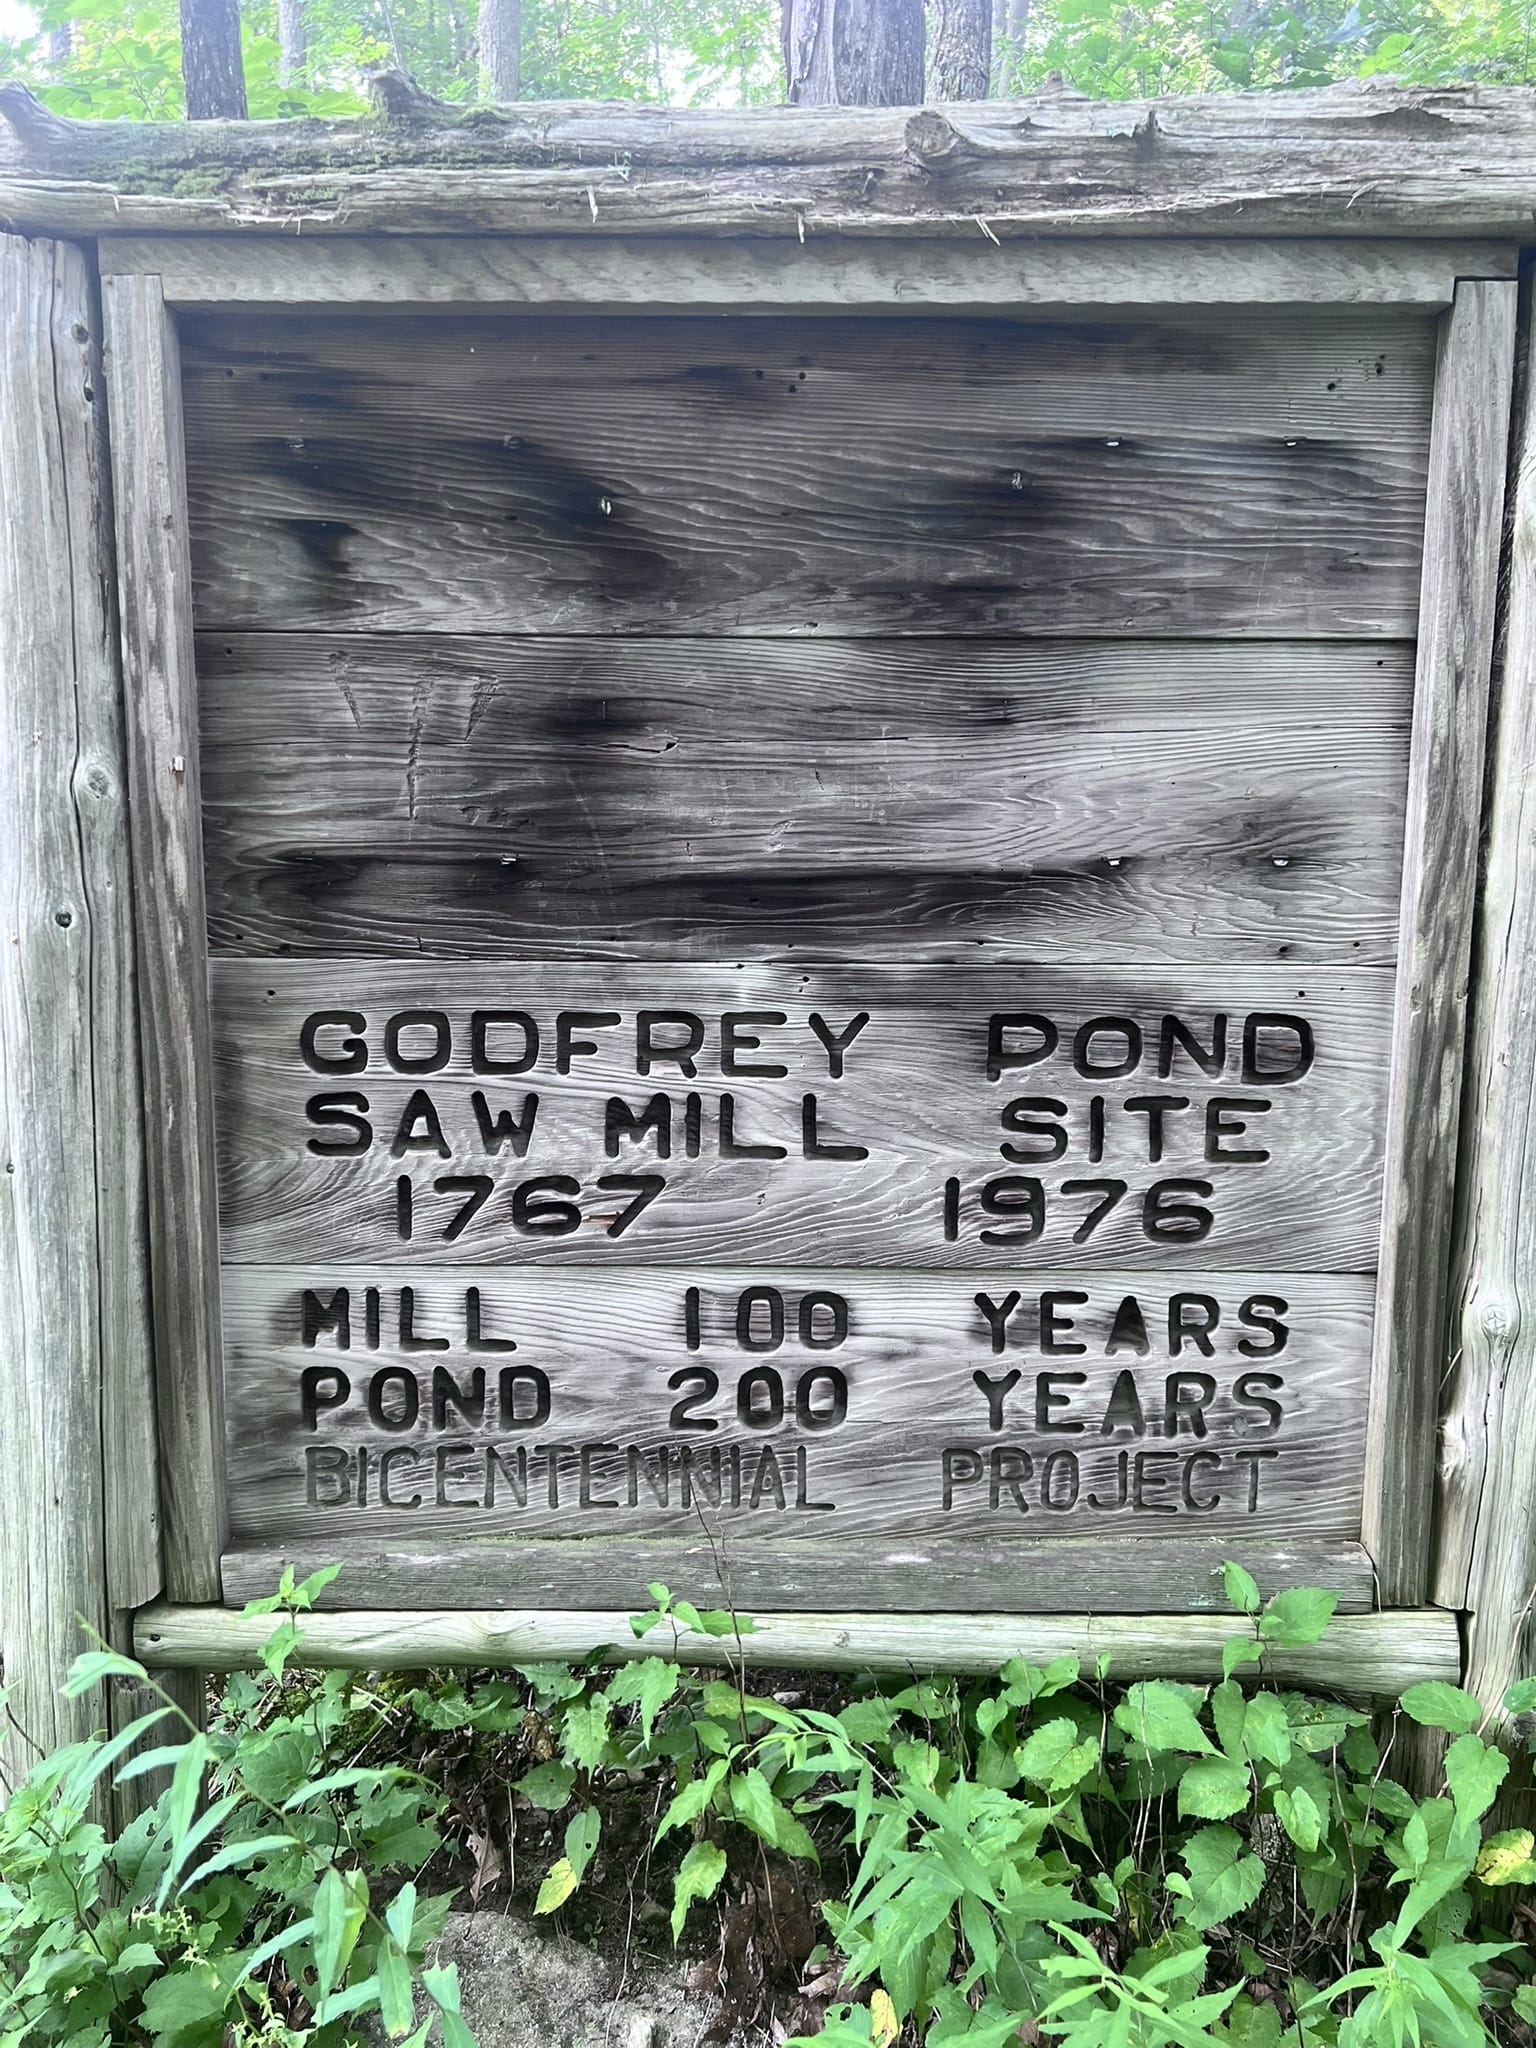 GODFREY POND
SAW MILL SITE
1767 1976
MILL 100 YEARS
POND 200 YEARS
BICENTENNIAL PROJECT